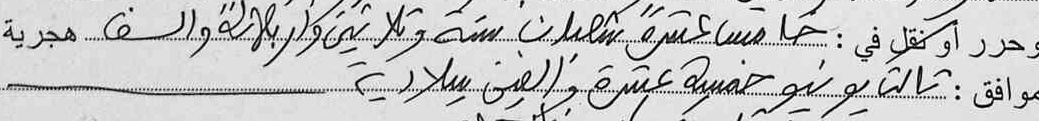 وحرر أو نقل في : خامس عشرة شعبان سنة وثلاثين وأربعمائة وألف هجرية
موافق : ثالث يونيو خمسة عشرة وألفين ميلادية